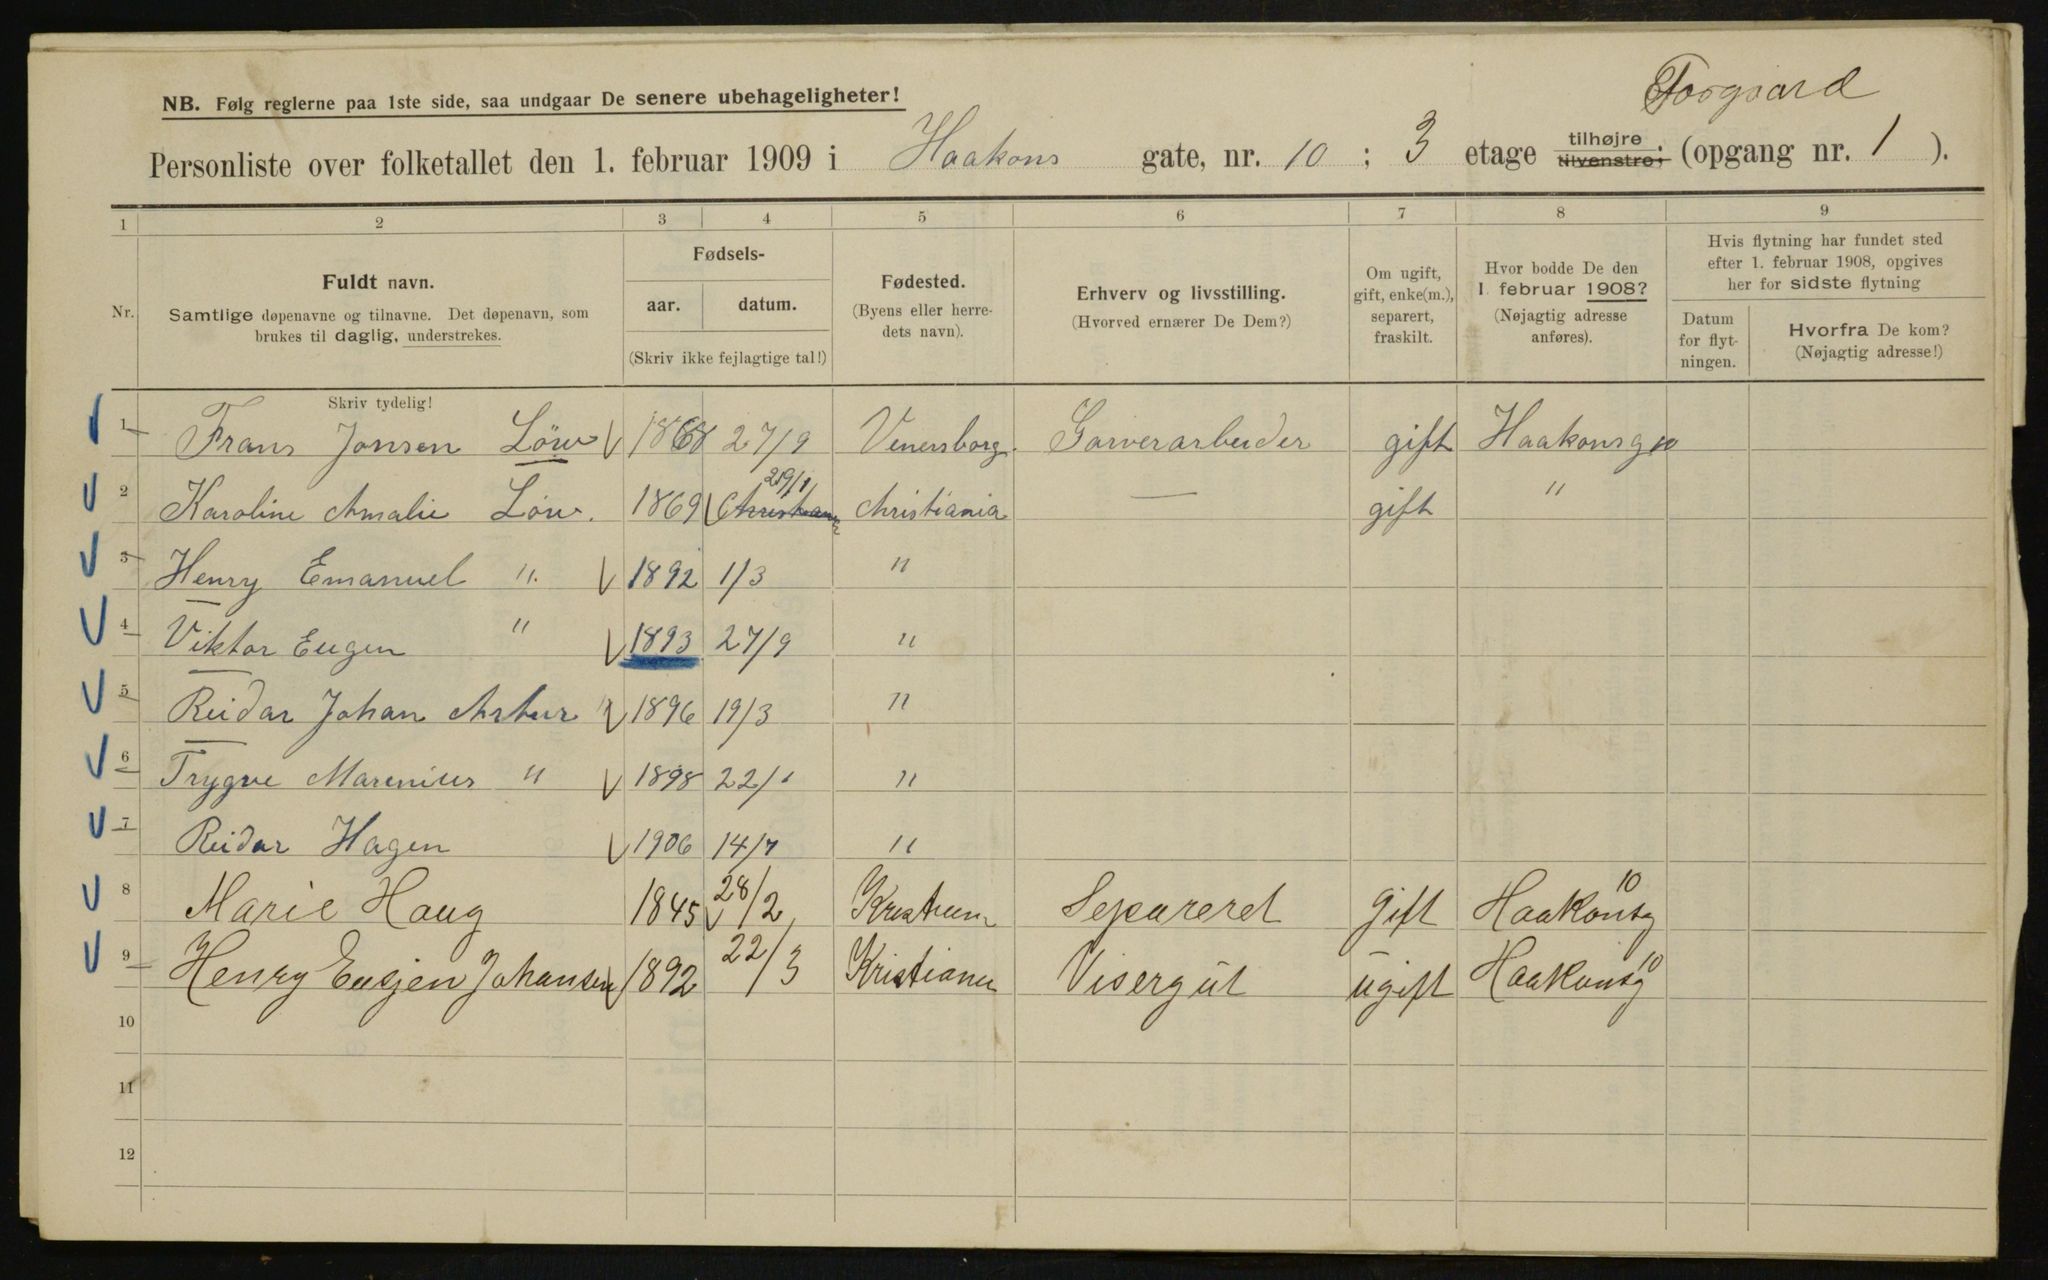 Forgaard
NB. Følg reglerne paa 1ste side, saa undgaar De senere ubehageligheter!
Personliste over folketallet den 1. februar 1909 i Haakons gate, nr. 10 ; 3 etage tilhøjre. tilvenstre; (opgang nr. 1 ).
1 2 3 4 5 6 7 8 9
Nr.
Fuldt navn.
Samtlige døpenavne og tilnavne. Det døpenavn, som
brukes til daglig, understrekes.
Fødsels-
aar. datum.
(Skriv ikke fejlagtige tal!)
Fødested.
(Byens eller herre-
dets navn).
Erhverv og livsstilling.
(Hvorved ernærer De Dem?)
Om ugift,
gift, enke(m.),
separert,
fraskilt.
Hvor bodde De den
1. februar 1908?
(Nøjagtig adresse
anføres).
Hvis flytning har fundet sted
efter 1. februar 1908, opgives
her for sidste flytning
Datum
for flyt-
ningen.
Hvorfra De kom?
(Nøjagtig adresse!)
Skriv tydelig!
1 Frans Jonsen Löw 1868 27/9 Venersborg. Garverarbeider gift Haakonsg 10
2 Karoline Amalie Löw. 1869 Christiania 29/1 Christiania — gift "
3 Henry Emanuel " 1892 1/3 "
4 Viktor Eugen " 1893 27/9 "
5 Reidar Johan Artur " 1896 19/3 "
6 Trygve Marenius " 1898 22/1 "
7 Reidar Hagen 1906 14/7 "
8 Marie Haug 1845 28/2 Separeret gift Haakonsg 10
9 Henry Eusjen Johansen 1892 22/3 Kristiania Visergut ugift Haakonsg 10
10
11
12